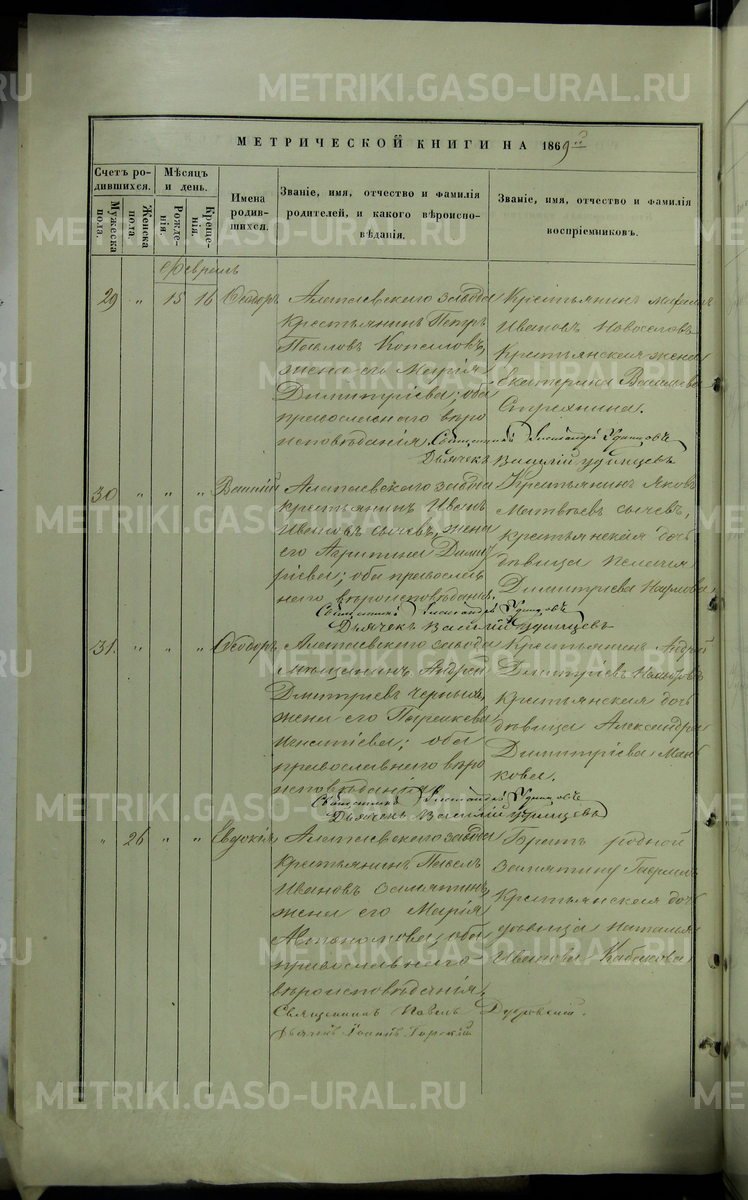 METRIKI.GASO-URAL.RU
МЕТРИЧЕСКОЙ КНИГИ НА 1869й
Счетъ родившихся.
Мѣсяцъ и день.
Имена родившихся.
Званіе, имя, отчество и фамилія родителей, и какого вѣроисповѣданія.
Званіе, имя, отчество и фамилія воспріемниковъ.
Мужеска пола.
Женска пола.
Рожденія.
Крещенія.
Февраль
29 „ 15 16 Ѳеодоръ
Алапаевскаго завода
крестьянинъ Петръ
Павловъ
жена его Марія
Димитріева; оба
православнаго вѣро
исповѣданія
Крестьянинъ
Ивановъ Новоселовъ
Крестьянская жена
Екатерина Васильева
Священникъ Александръ Удинцовъ
Дьячекъ Василій Удинцевъ
30 „ „ „ Василій
Алапаевскаго завода
крестьянинъ Иванъ
Ивановъ Сычевъ, жена
его Агрипина Дими
ріева; оба православ
наго вѣроисповѣданія.
Крестьянинъ Яковъ
Матвѣевъ Сычевъ,
крестьянская дочь
дѣвица Пелагія
Димитріева
Священникъ Александръ Удинцовъ
Дьячекъ Василій Удинцевъ
31. „ „ „ Ѳеодоръ
Алапаевскаго завода
Мѣщанинъ Андрей
Дмитріевъ Черныхъ,
жена его Параскева
Игнатіева; оба
православнаго вѣро
исповѣданія
Крестьянинъ Андрей
Димитріевъ
крестьянская дочь
дѣвица Александра
Димитріева Мань
кова.
Священникъ Александръ Удинцовъ
Дьячекъ Василій Удинцевъ
„ 26 „ „ Евдокія
Алапаевскаго завода
Крестьянинъ Павелъ
Ивановъ Замятинъ,
жена его Марія
Автономова; оба
православнаго
вѣроисповѣданія.
Братъ родной
Замятину Гавріилъ
Крестьянская дочь
дѣвица Наталья
Иванова Кабакова
Священникъ Павелъ
Дьячекъ Іоаннъ Горскій